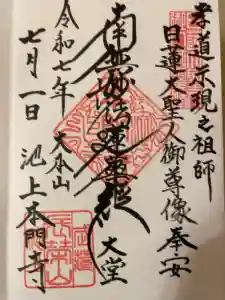 孝道示現之祖師
日蓮大聖人御尊像奉安
南無妙法蓮華経
大堂
令和七年
大本山
七月一日
池上本門寺